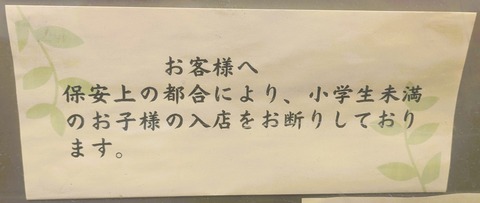 お客様へ
保安上の都合により、小学生未満
のお子様の入店をお断りしており
ます。